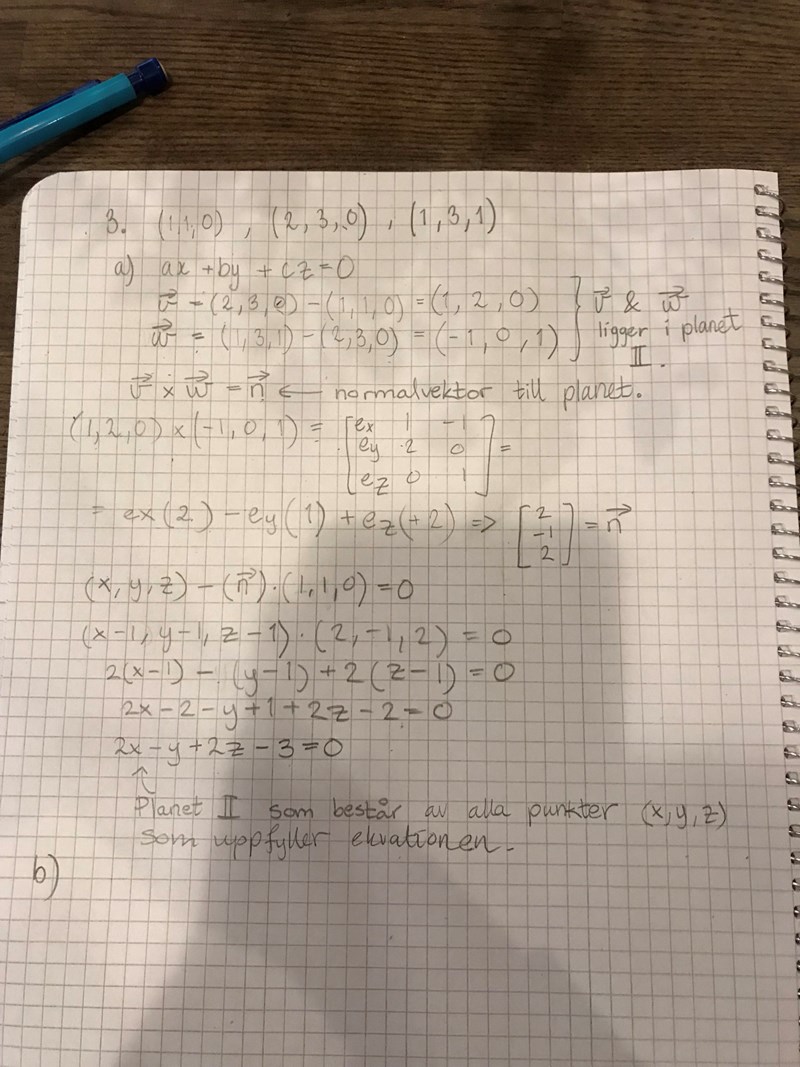 3. (1,1,0) , (2,3,0) , (1,3,1)
a) ax + by + cz = 0
v⃗ = (2,3,0) - (1,1,0) = (1,2,0) } v⃗ & w⃗
w⃗ = (1,3,1) - (2,3,0) = (-1,0,1) } ligger i planet II.
v⃗ × w⃗ = n⃗ ← normalvektor till planet.
(1,2,0) × (-1,0,1) = [ex 1 -1
ey 2 0
ez 0 1] =
= ex(2) - ey(1) + ez(+2) => [2 -1 2] = n⃗
(x,y,z) - (n⃗)·(1,1,0) = 0
(x-1, y-1, z-1)·(2,-1,2) = 0
2(x-1) - (y-1) + 2(z-1) = 0
2x-2-y+1+2z-2=0
2x-y+2z-3=0
↑
Planet II som består av alla punkter (x,y,z)
som uppfyller ekvationen.
b)